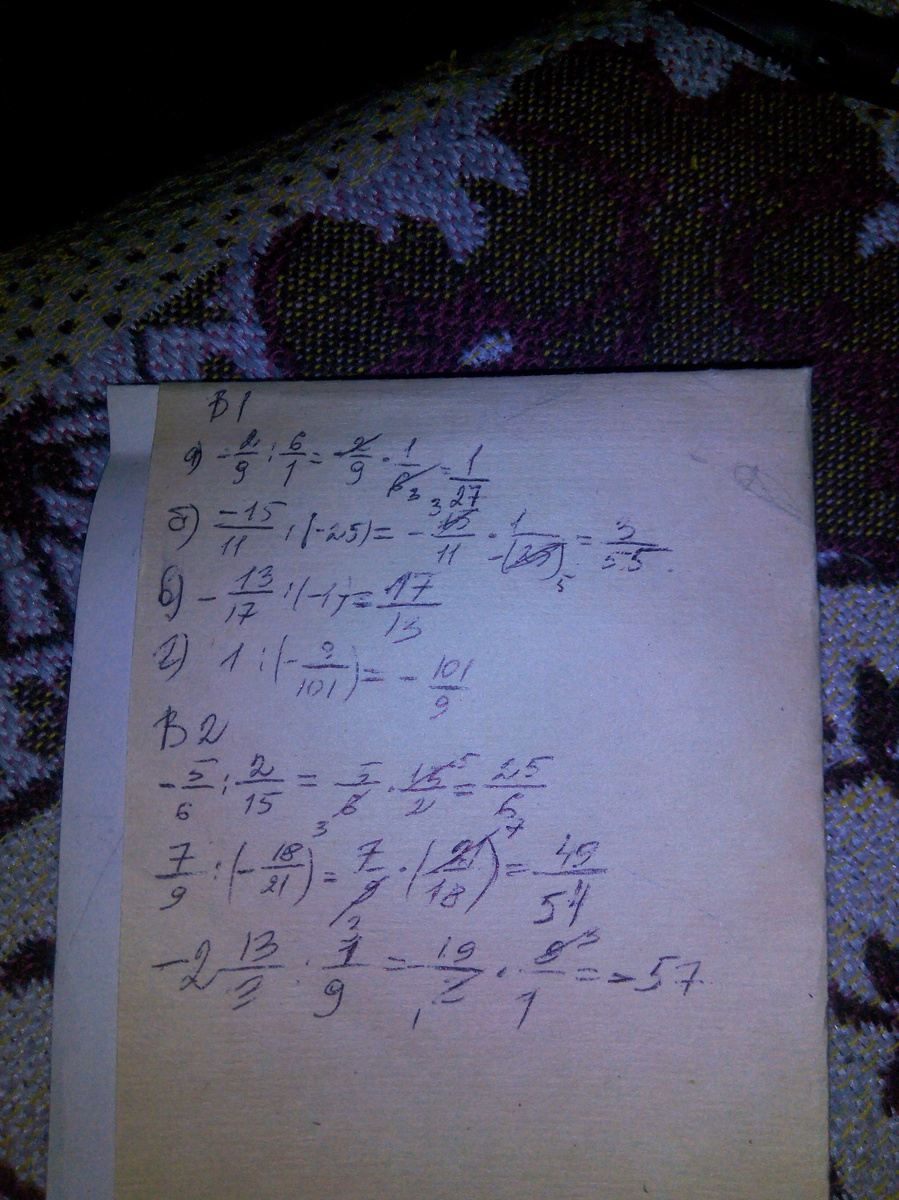 В1
а) -2/9 : 6/1 = -2/9 · 1/6 3 = 1/27
б) -15/11 : (-25) = - 3 15/11 · 1/-(25) 5 = 3/55.
в) - 13/17 : (-1) = 17/13
г) 1 : (- 9/101) = - 101/9
В2
- 5/6 : 2/15 = 5/6 · 15 5/2 = 25/6
7/9 : (- 18/21) = 7/9 3 · (21 7/18) = 49/54
-2 13/3 : 1/9 = - 19/ · 9 3/1 = -57